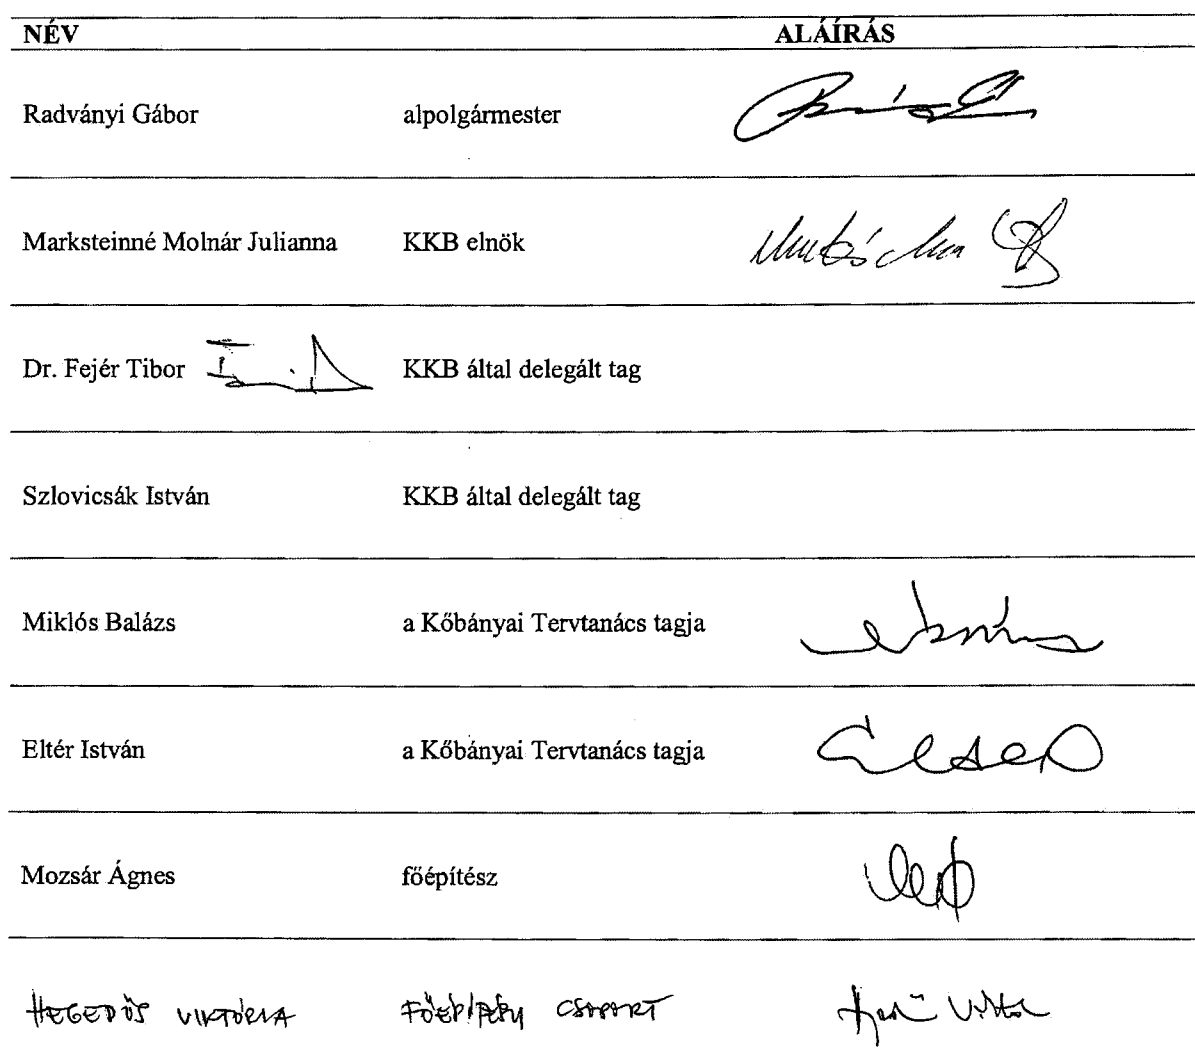 NÉV ALÁÍRÁS
Radványi Gábor alpolgármester
Marksteinné Molnár Julianna KKB elnök
Dr. Fejér Tibor KKB által delegált tag
Szlovicsák István KKB által delegált tag
Miklós Balázs a Kőbányai Tervtanács tagja
Eltér István a Kőbányai Tervtanács tagja
Mozsár Ágnes főépítész
HEGEDŰS VIKTÓRIA CSOPORT